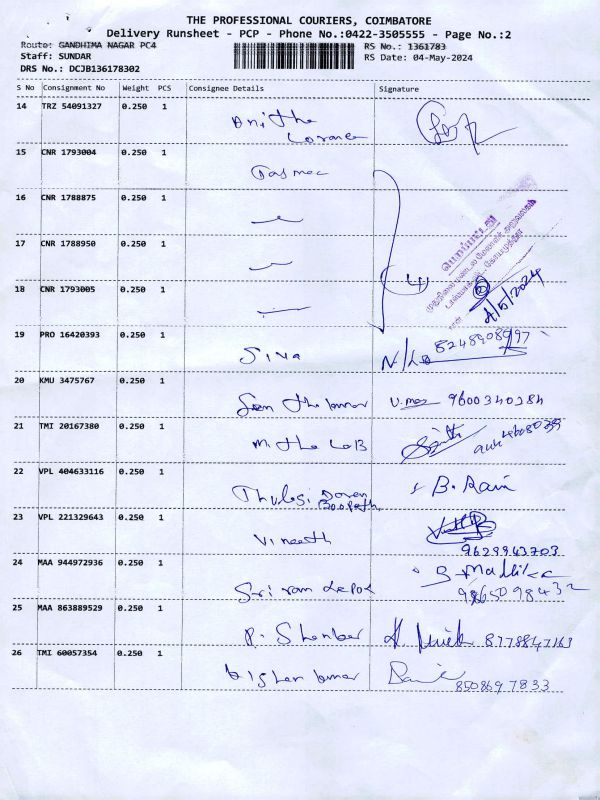 THE PROFESSIONAL COURIERS, COIMBATORE
Delivery Runsheet - PCP - Phone No.:0422-3505555 - Page No.:2
Route: GANDHIMA NAGAR PC4
RS No.: 1361783
Staff: SUNDAR
RS Date: 04-May-2024
DRS No.: DCJB136178302
S No Consignment No Weight PCS Consignee Details Signature
14 TRZ 54091327 0.250 1
Anitha
15 CNR 1793004 0.250 1
Tasmac
16 CNR 1788875 0.250 1
17 CNR 1788950 0.250 1
(4)
18 CNR 1793005 0.250 1
4/5/2024
19 PRO 16420393 0.250 1
Siva 8248908997
20 KMU 3475767 0.250 1
9600340284
21 TMI 20167380 0.250 1
22 VPL 404633116 0.250 1
Thulasi B. Rani
Boopath
23 VPL 221329643 0.250 1
Vineeth
9629943703
24 MAA 944972936 0.250 1
Sri ram depot
9865098432
25 MAA 863889529 0.250 1
P. 8778847163
26 TMI 60057354 0.250 1
8508697833